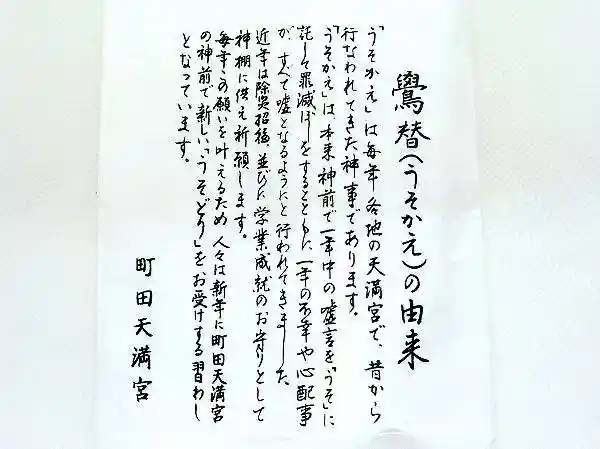 鷽替(うそかえ)の由来
「うそかえ」は毎年各地の天満宮で、昔から
行なわれてきた神事であります。
「うそかえ」は、本来神前で一年中の嘘言を「うそ」に
託して罪滅ぼしをするとともに、一年の不幸や心配事
が、すべて嘘となるようにと行われてきました。
近年は除災招福、並びに学業成就のお守りとして
神棚に供え祈願します。
毎年この願いを叶えるため人々は新年に町田天満宮
の神前で新しい「うそどり」をお受けする習わし
となっています。
町田天満宮